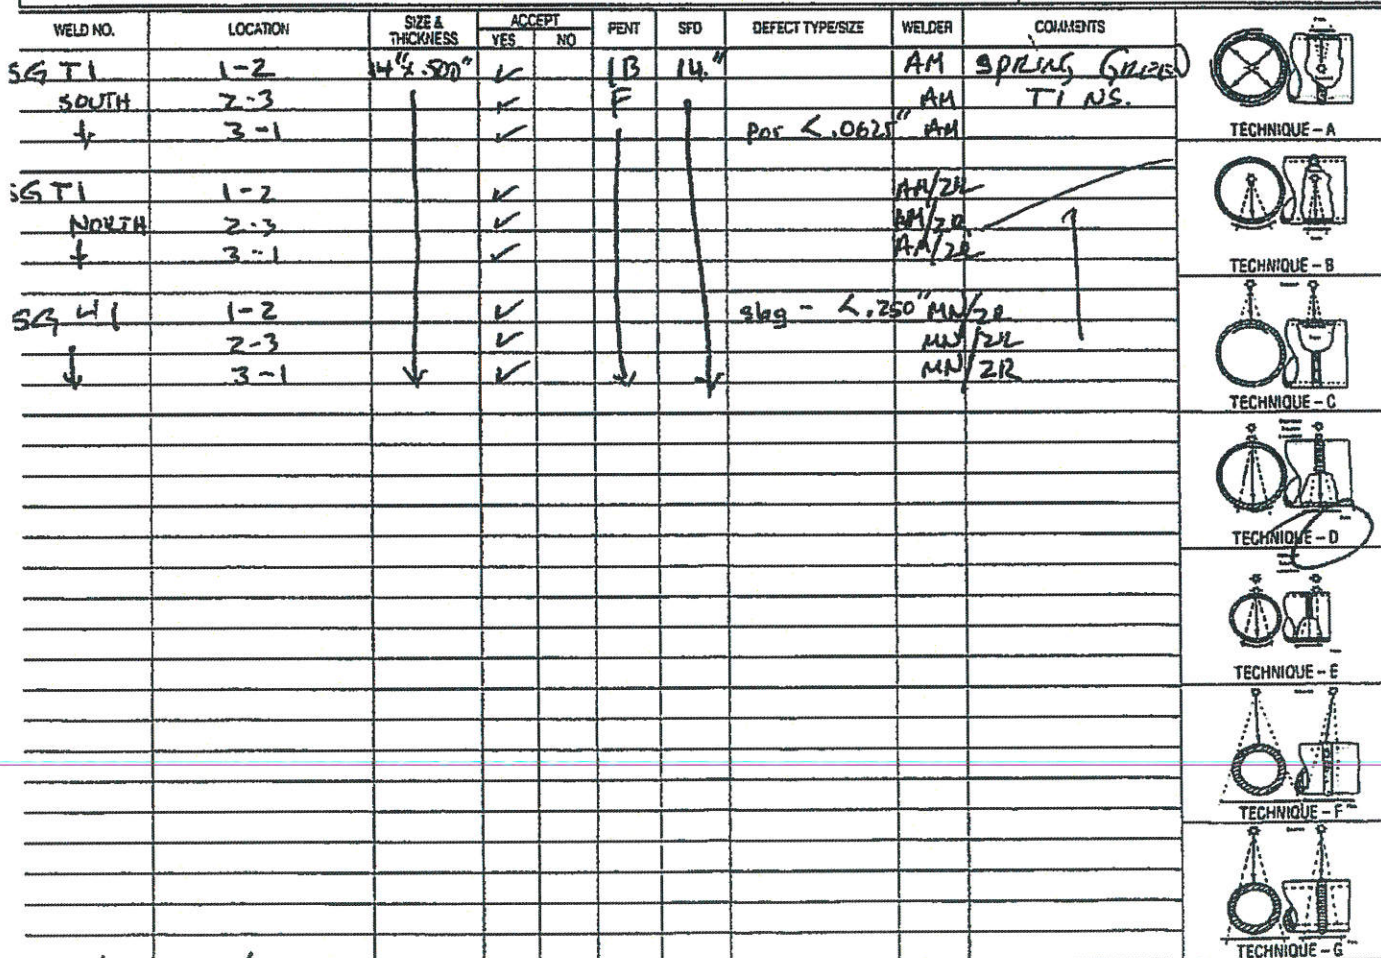 WELD NO. LOCATION SIZE & THICKNESS ACCEPT YES NO PENT SFD DEFECT TYPE/SIZE WELDER COMMENTS
SG T1 1-2 14"x.500" ✓ 1B 14." AM SPRING GREEN
SOUTH 2-3 ✓ F AM T1 NS.
↓ 3-1 ✓ por <.0625" AM
SG T1 1-2 ✓ AM/ZR
NORTH 2-3 ✓ AM/ZR
↓ 3-1 ✓ AM/ZR
SG 1-2 ✓ slag - <.250" MN/ZR
2-3 ✓ MN/ZR
3-1 ✓ MN/ZR
TECHNIQUE - A
TECHNIQUE - B
TECHNIQUE - C
TECHNIQUE - D
TECHNIQUE - E
TECHNIQUE - F
TECHNIQUE - G